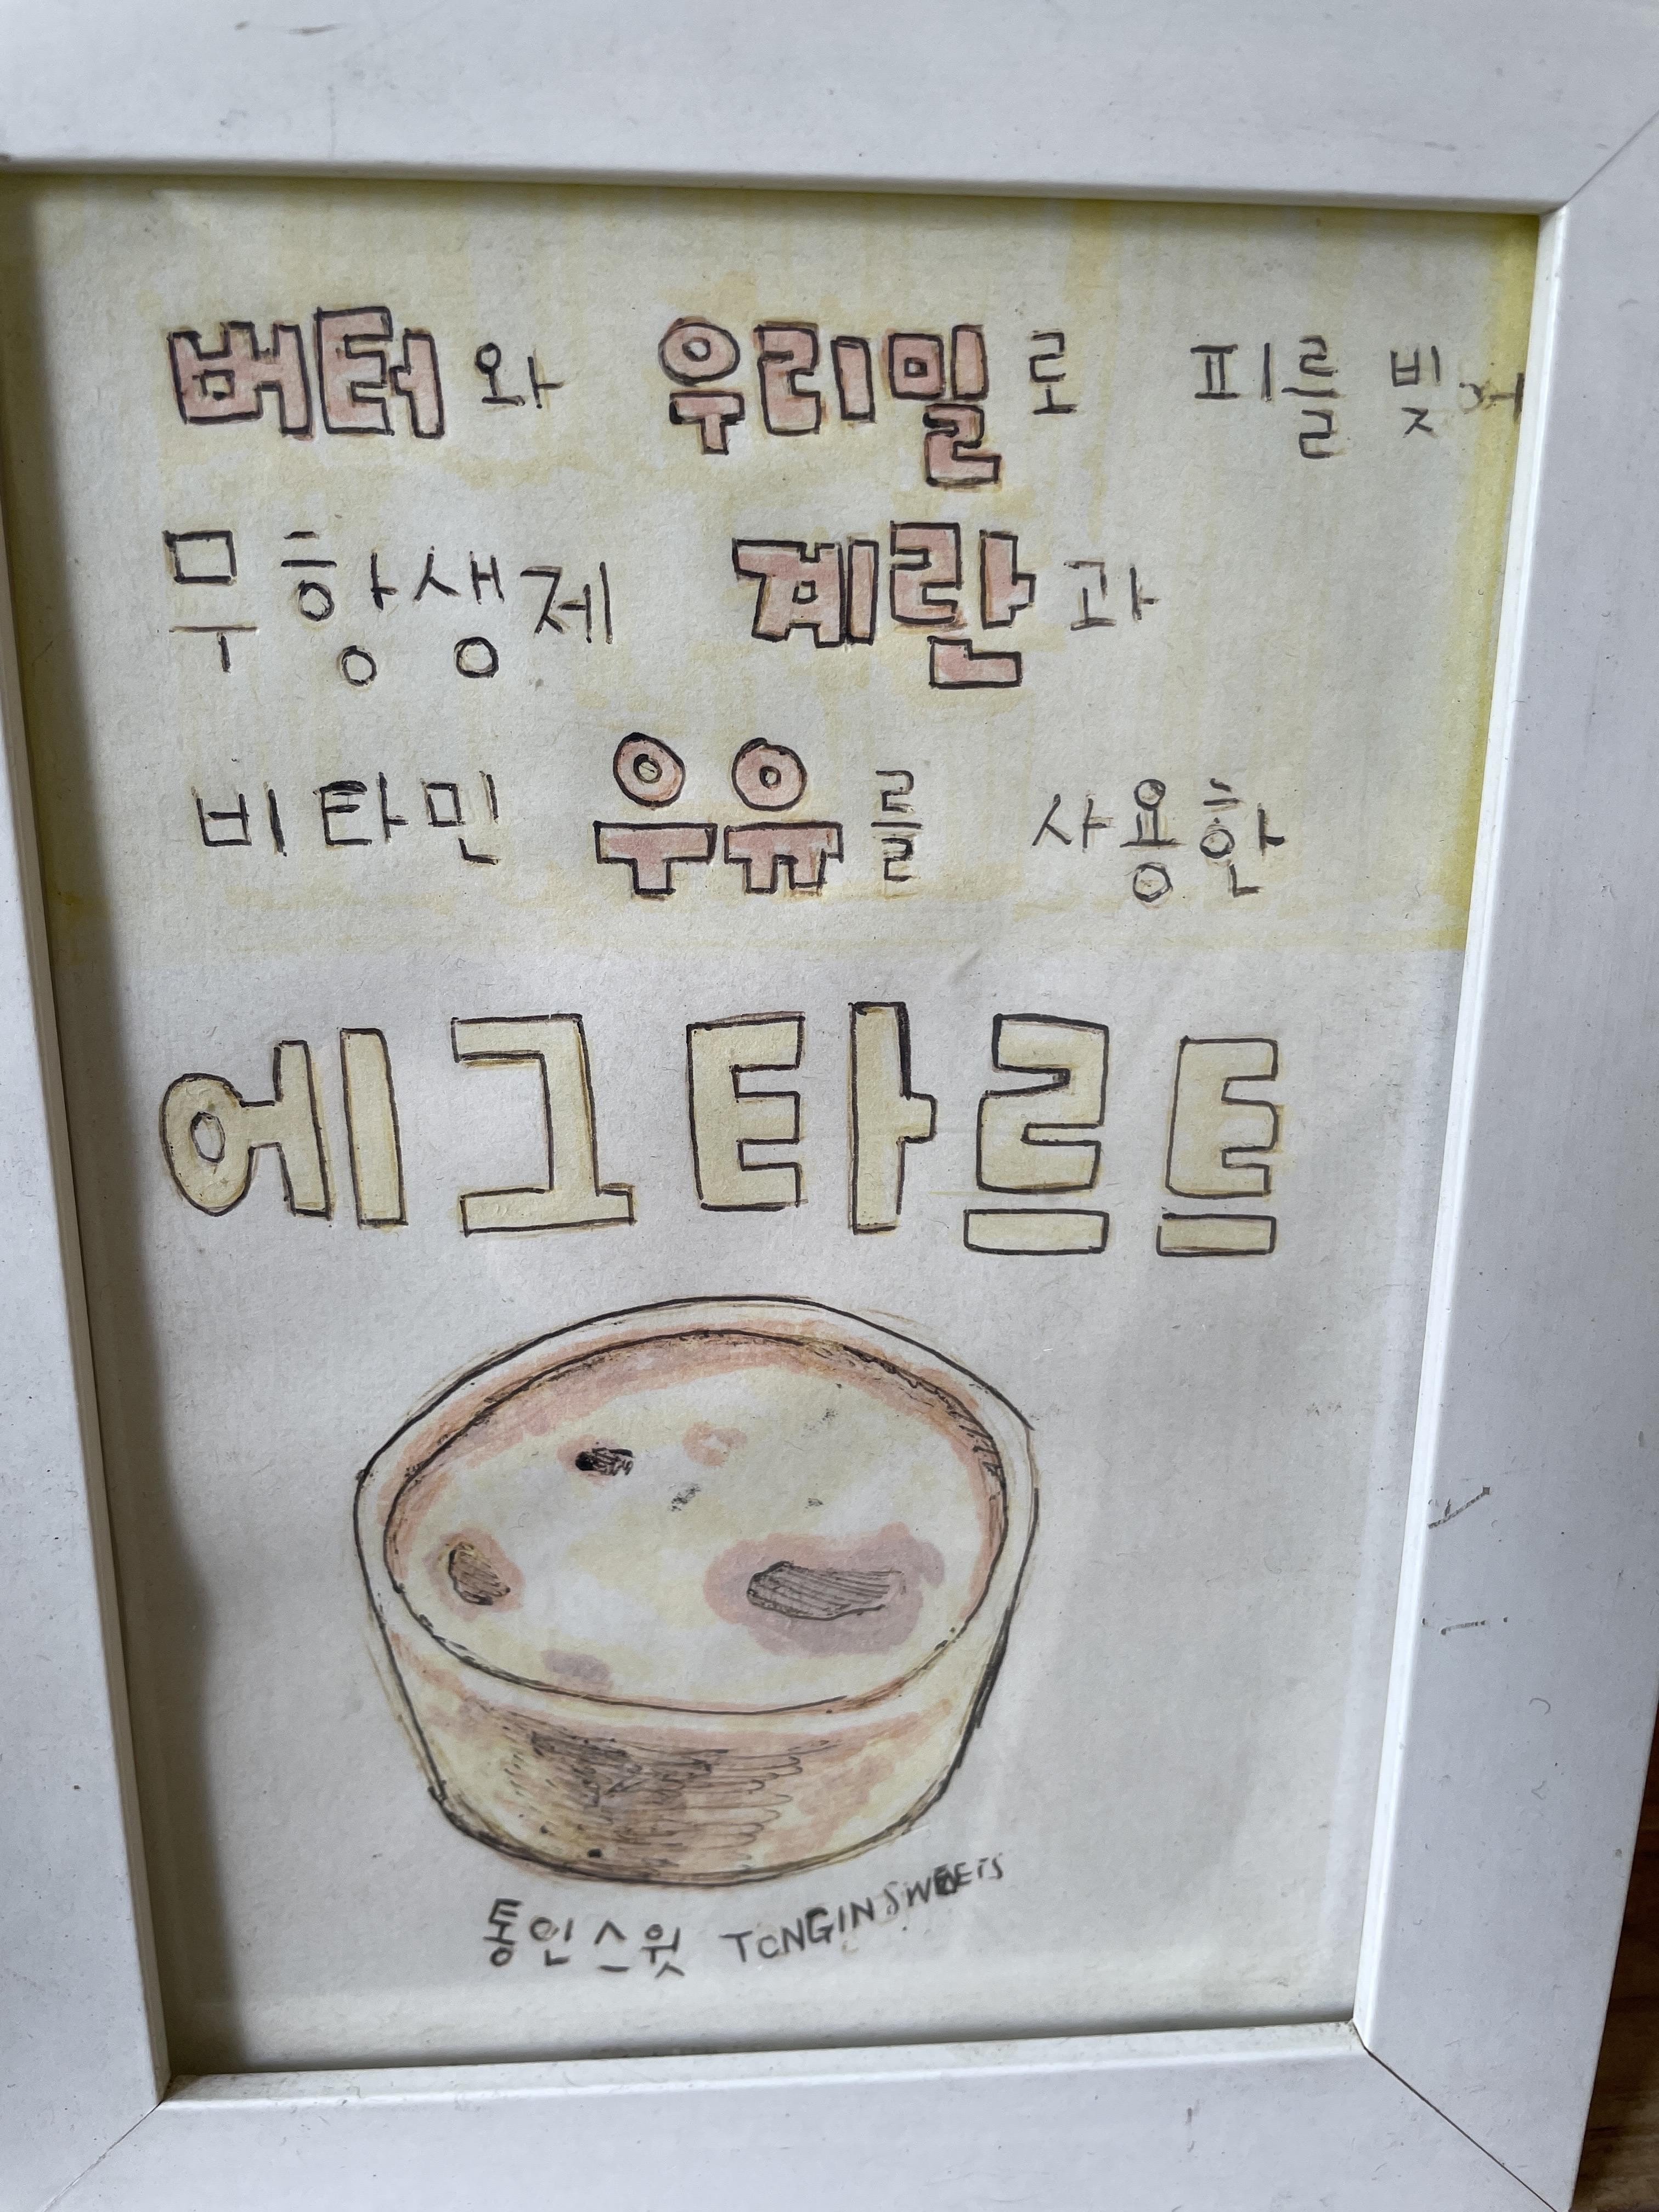 버터와 우리밀로 피를 빚어
무항생제 계란과
비타민 우유를 사용한
에그타르트
통인스윗 TONGINSWEETS